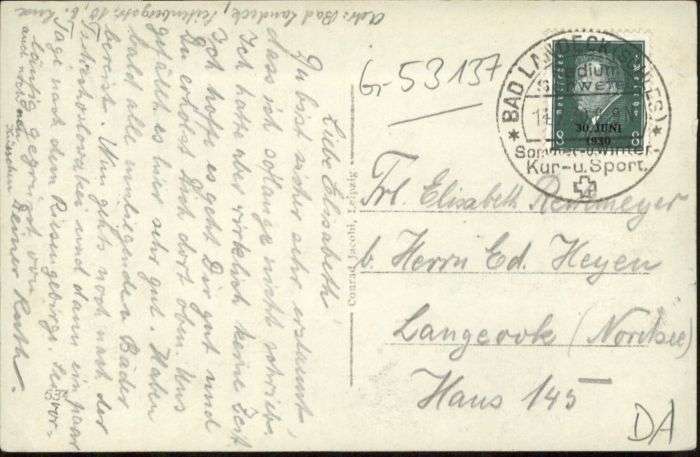 Abs: Bad Landeck, Seitenbergstr. 10, b. Lux
Liebe Elisabeth!
Du bist sicher sehr erstaunt,
dass ich solange nicht schrieb.
Ich hatte aber wirklich keine Zeit
Ich hoffe es geht Dir gut und
Du erholst Dich dort oben. Uns
gefällt es hier sehr gut. Haben
bald alle umliegenden Bäder
bereist. Nun gehts noch nach der
Tschechoslovakei und dann ein paar
Tage nach dem Riesengebirge. Sei vor-
läufig gegrüsst von
Deiner Ruth.
auch von
Conrad Junghänel, Leipzig
Gr-53137
BAD LANDECK (SCHLES)
Radium
Schwefel
30. JUNI
1930
8 8
Sommer-u. Winter
Kur-u. Sport.
Frl. Elisabeth
b. Herrn Ed. Heyen
Langeoog (Nordsee)
Haus 145
DA